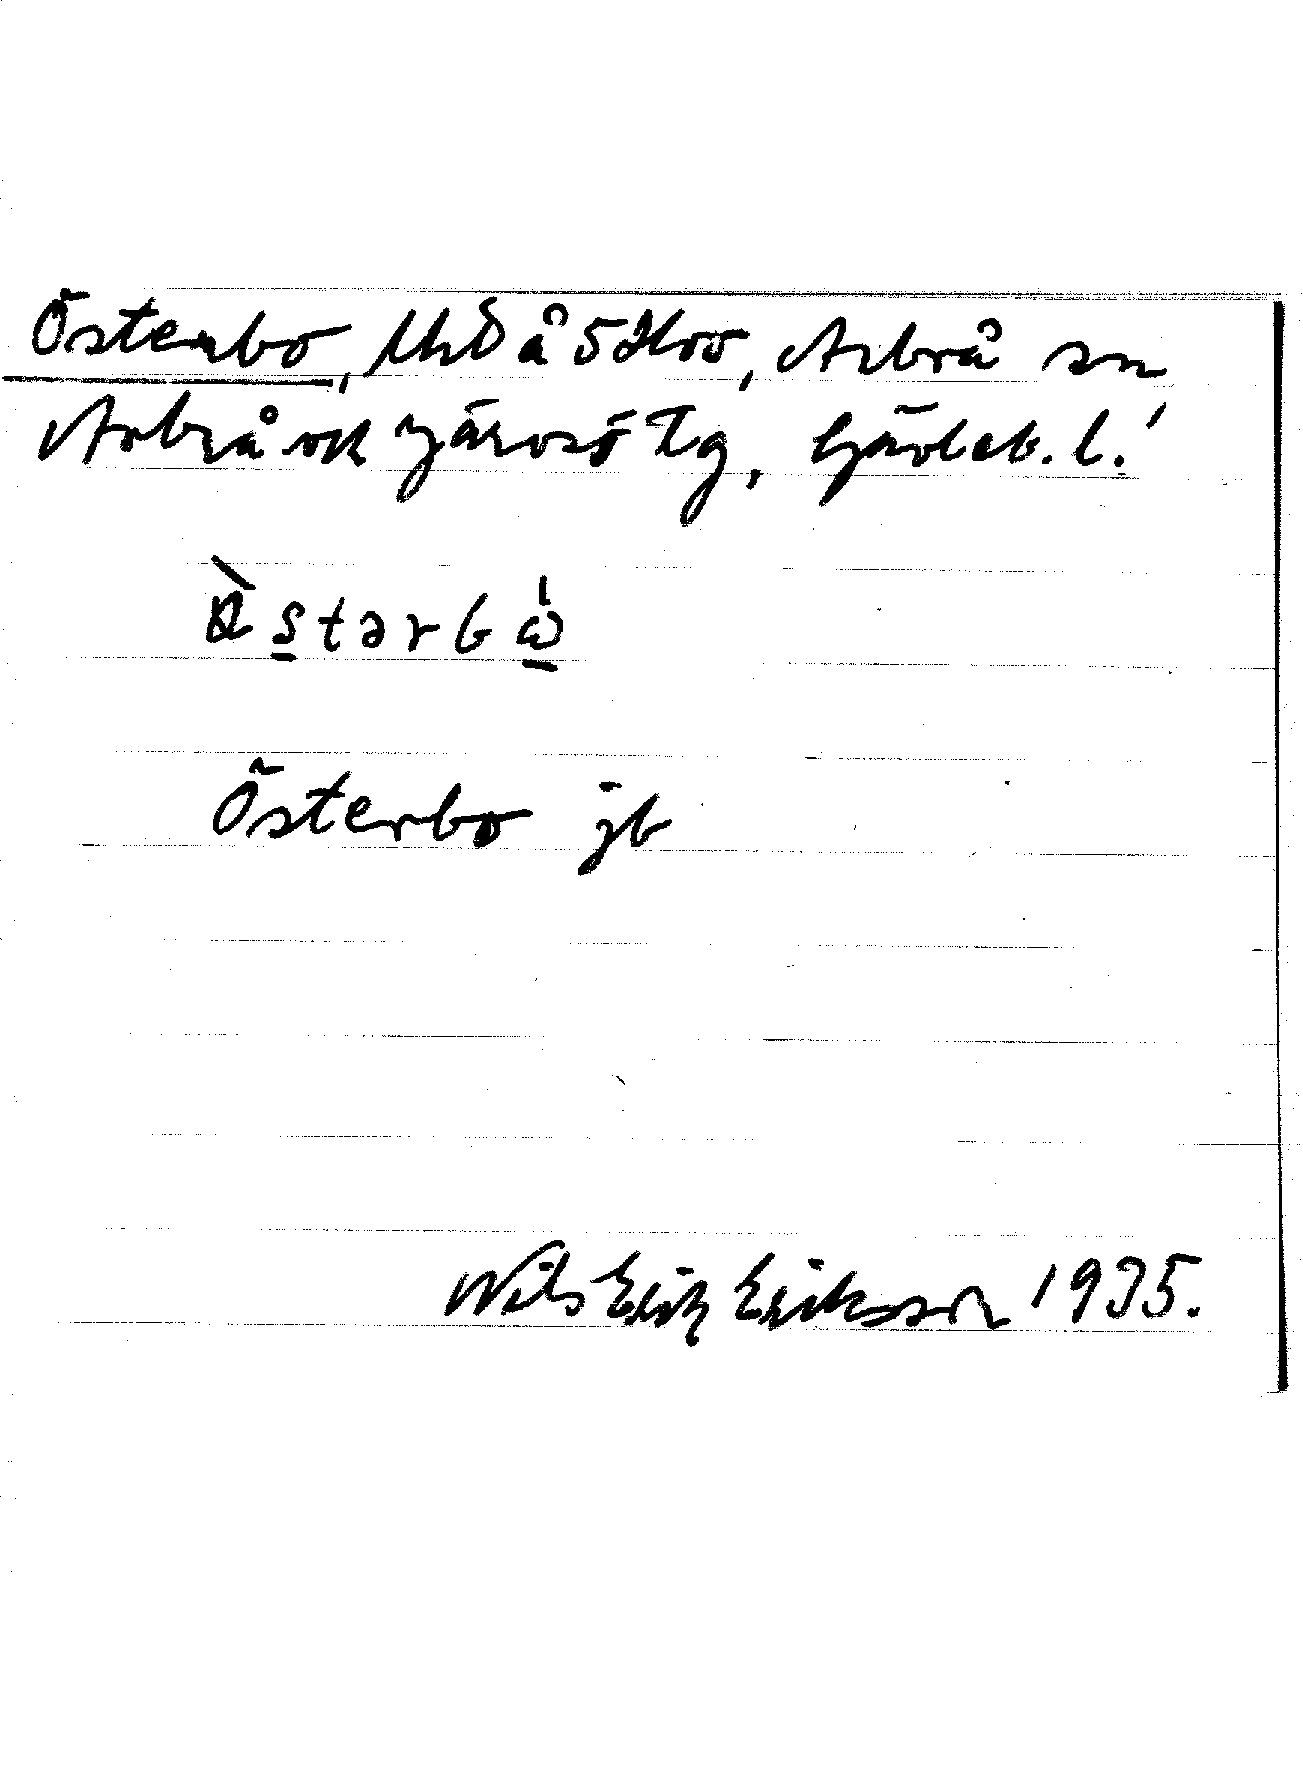 Österbo, Uhb å 5 Koo, Arbrå sn
Arbrå ok Järvsö tg, Gävleb. l.
starb
Österbo jb
Nils Erik Eriksson 1935.